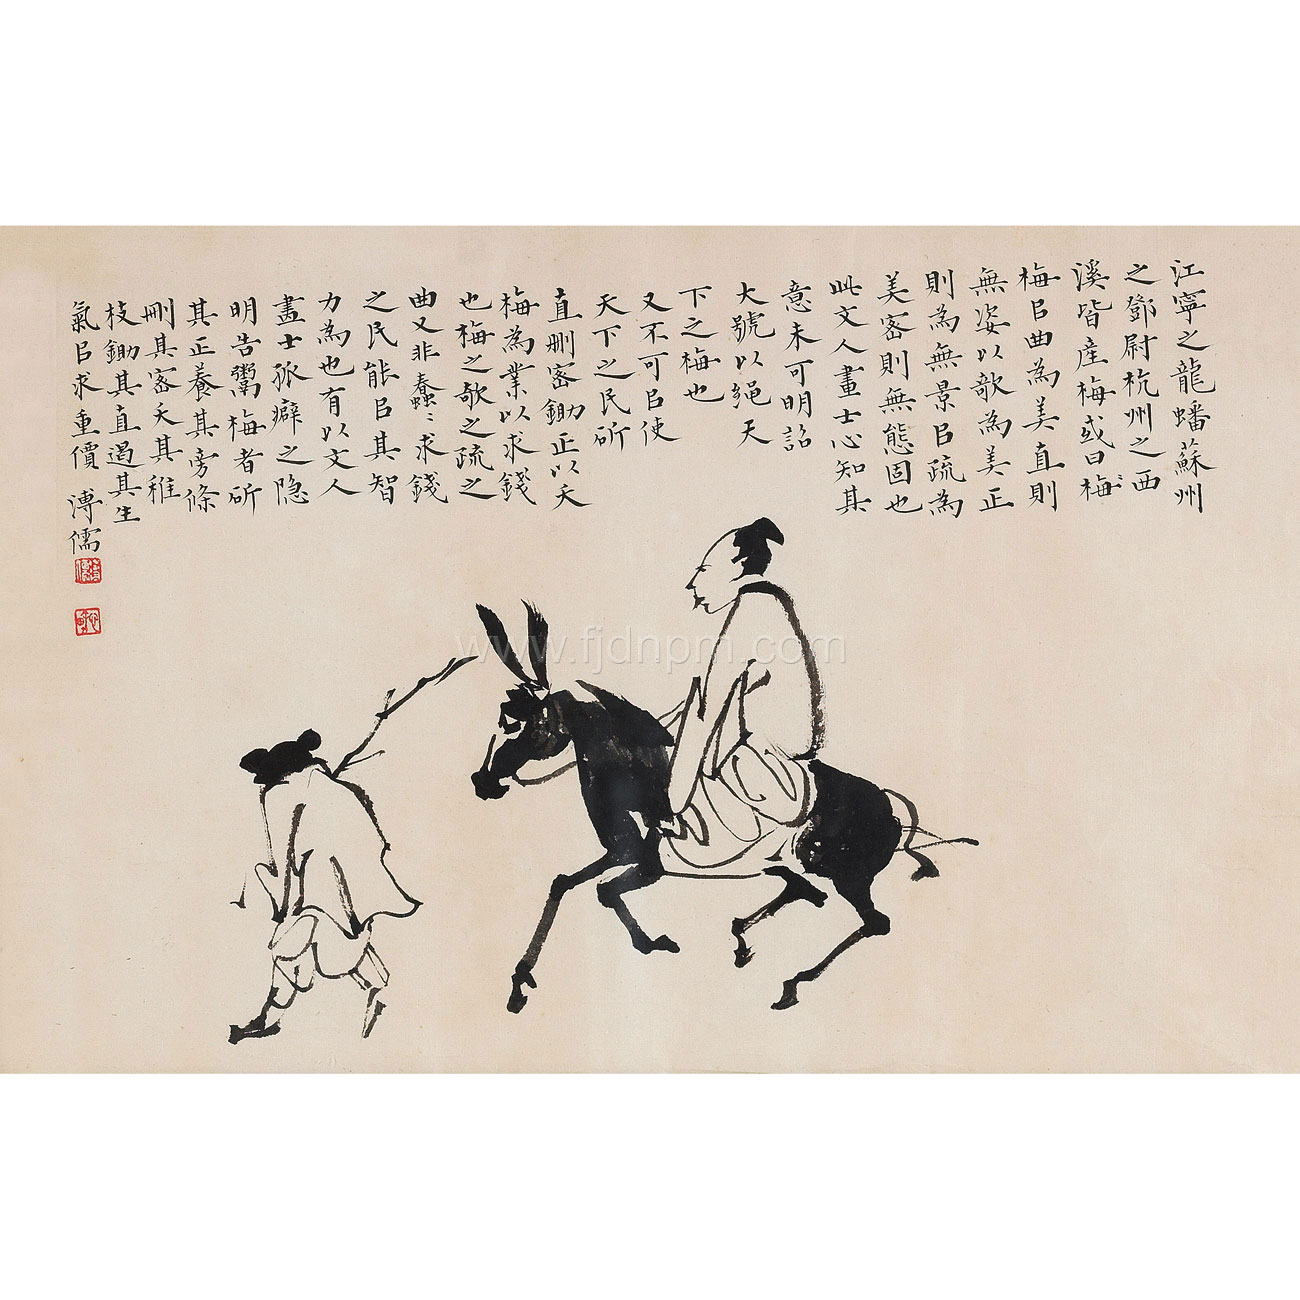 江寧之龍蟠蘇州
之鄧尉杭州之西
溪皆產梅或曰梅
梅㠯曲為美直則
無姿以欹為美正
則為無景㠯疏為
美密則無態固也
此文人畫士心知其
意未可明詔
大號以繩天
下之梅也
又不可㠯使
天下之民斫
直刪密鋤正以夭
梅為業以求錢
也梅之欹之疏之
曲又非蠢蠢求錢
之民能㠯其智
力為也有以文人
畫士孤癖之隐
明告鬻梅者斫
其正養其旁條
刪其密夭其稚
枝鋤其直遏其生
氣㠯求重價 溥儒
www.fjdnpm.com